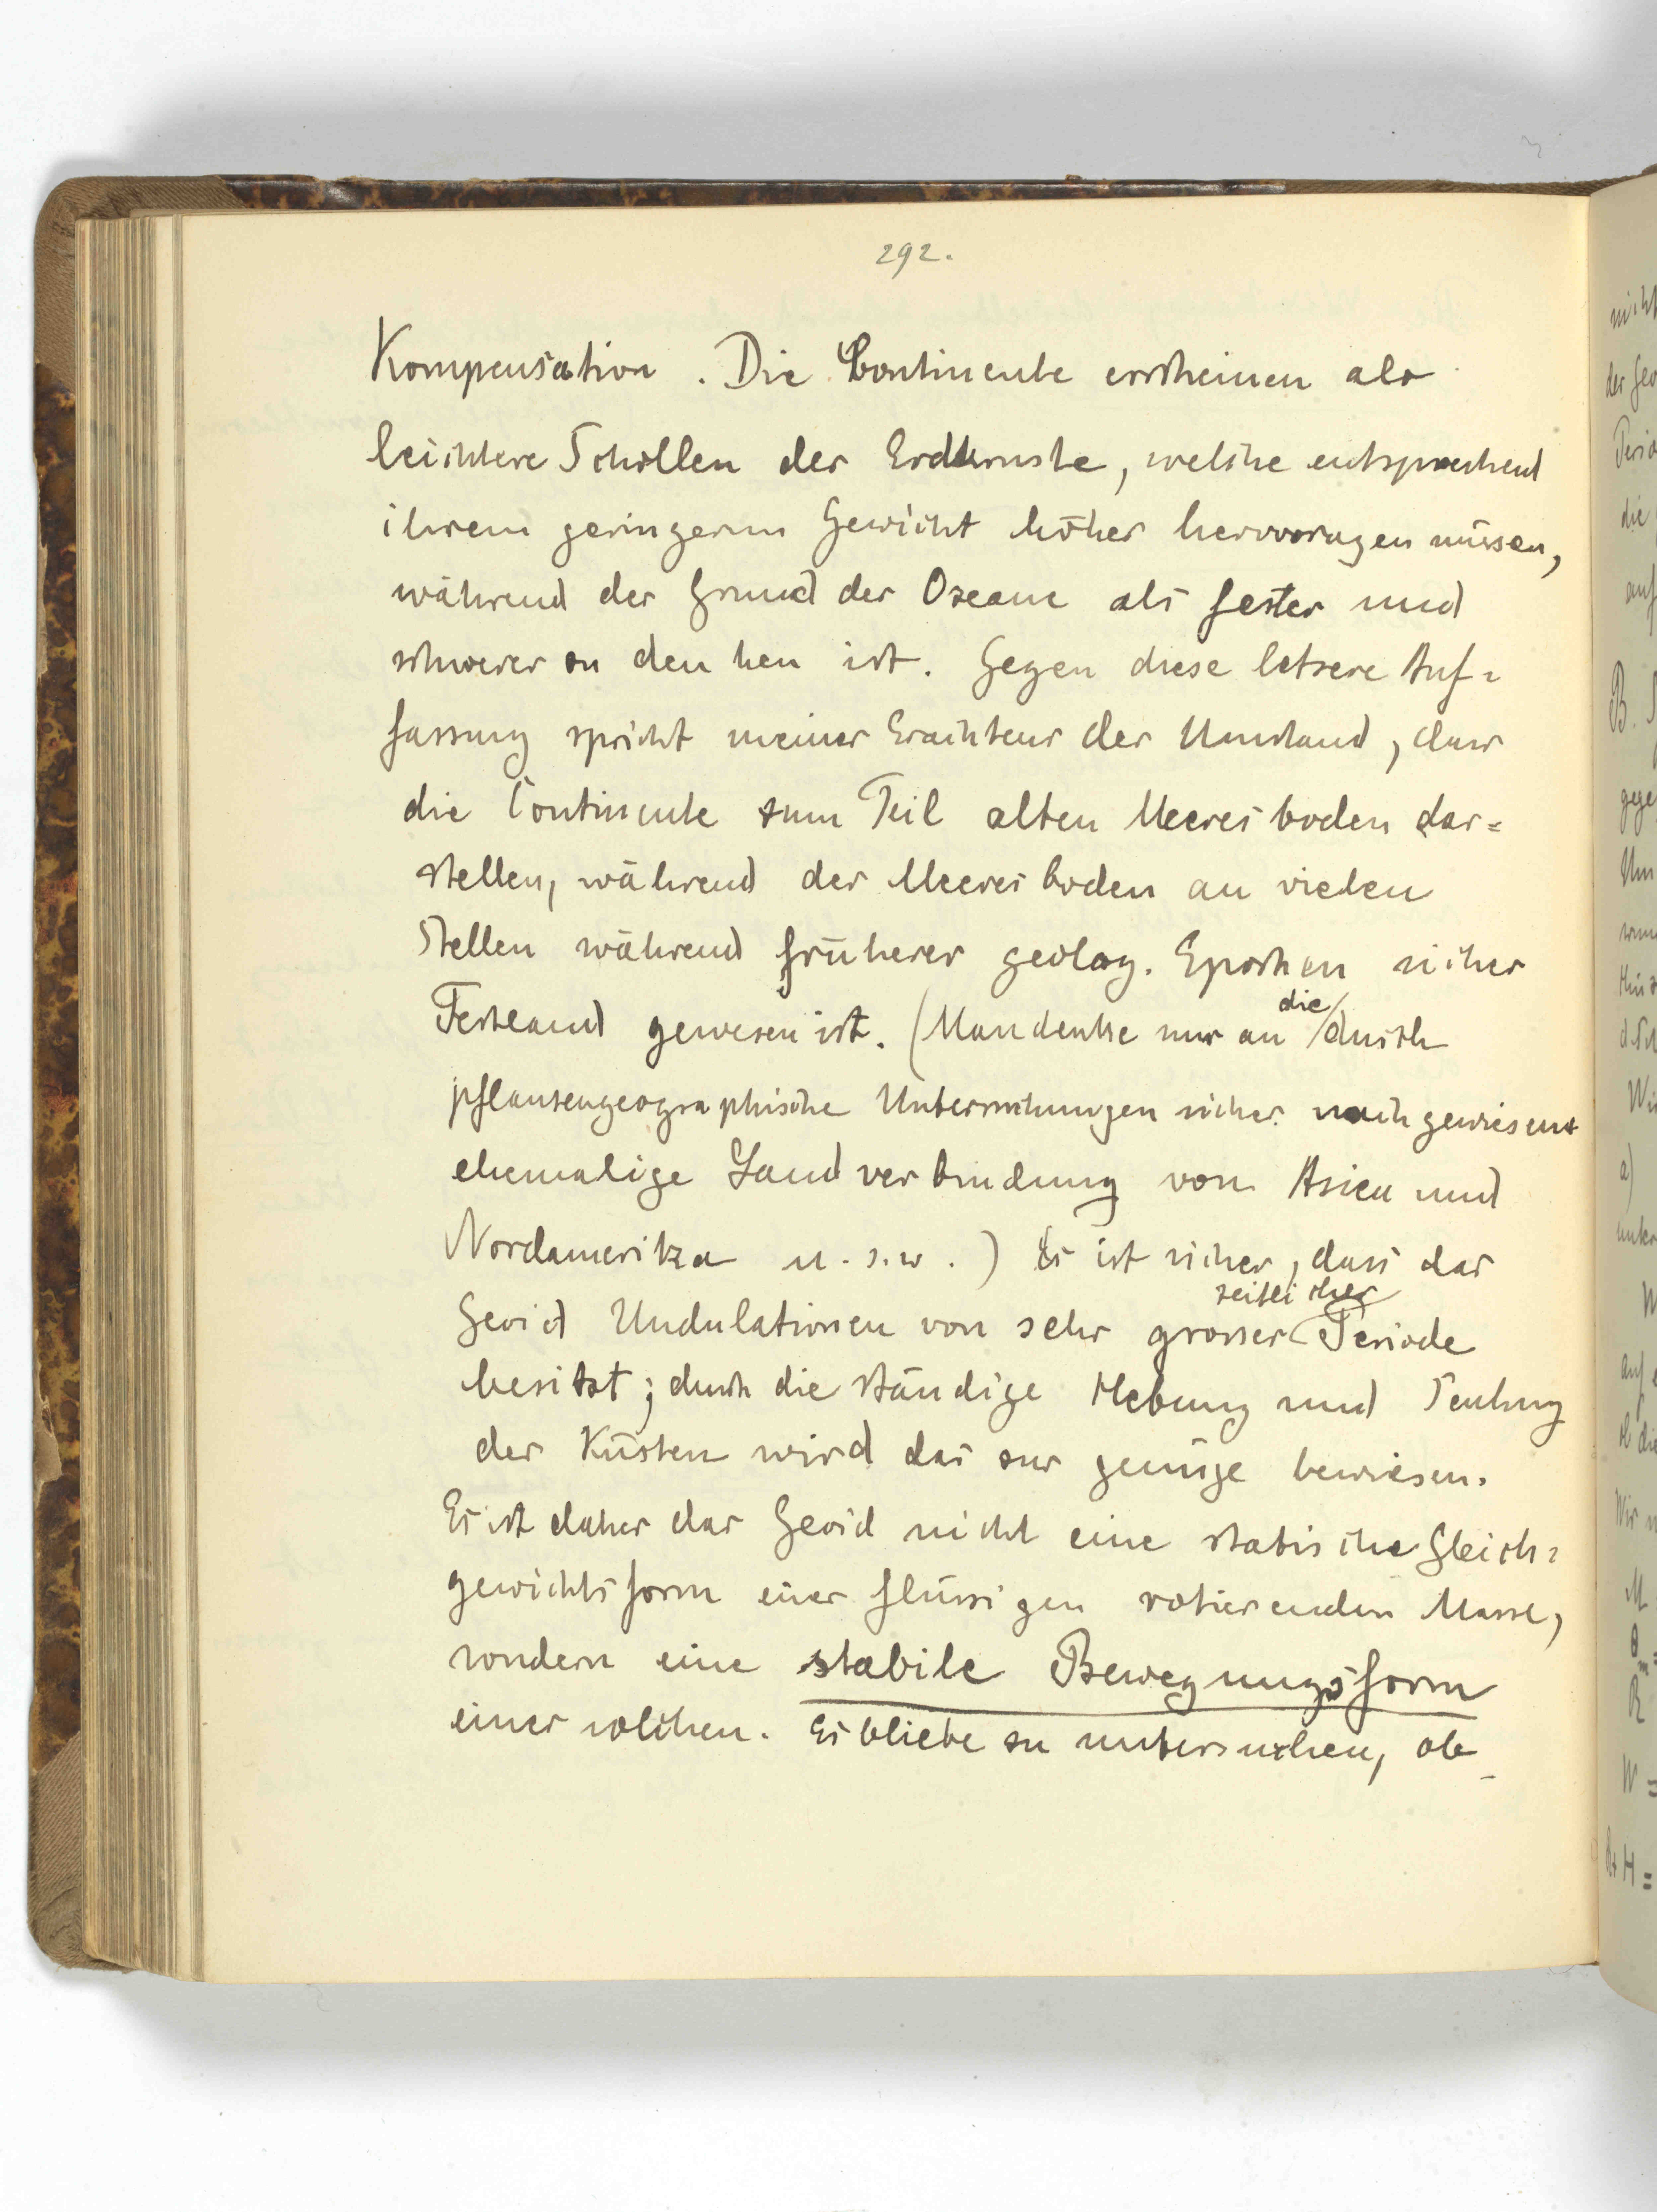 292.
Kompensation. Die Continente erscheinen als
leichtere Schollen der Erdkruste, welche entsprechend
ihrem geringerm Gewicht höher hervorragen müssen,
während der Grund der Ozeane als fester und
schwerer zu denken ist. Gegen diese letzere Auf=
fassung spricht meines Erachtens der Umstand, dass
die Continente zum Teil alten Meeresboden dar=
stellen, während der Meeresboden an vielen
Stellen während früherer geolog. Epochen sicher
Festland gewesen ist. (Man denke nur an die durch
pflanzengeographische Untersuchungen sicher nachgewiesene
ehemalige Landverbindung von Asien und
Nordamerika u.s.w.) Es ist sicher, dass das
Geoid Undulationen von sehr grosser zeitlicher Periode
besitzt; durch die ständige Hebung und Senkung
der Küsten wird das zur genüge bewiesen.
Es ist daher das Geoid nicht eine statische Gleich=
gewichtsform einer flüssigen rotierenden Masse,
sondern eine stabile Bewegungsform
einer solchen. Es bliebe zu untersuchen, ob
nicht
der Geo
Perio
die
auf
B.
gege
Um
Wi
a)
unter
auf
Wir
M
W =
R+H =